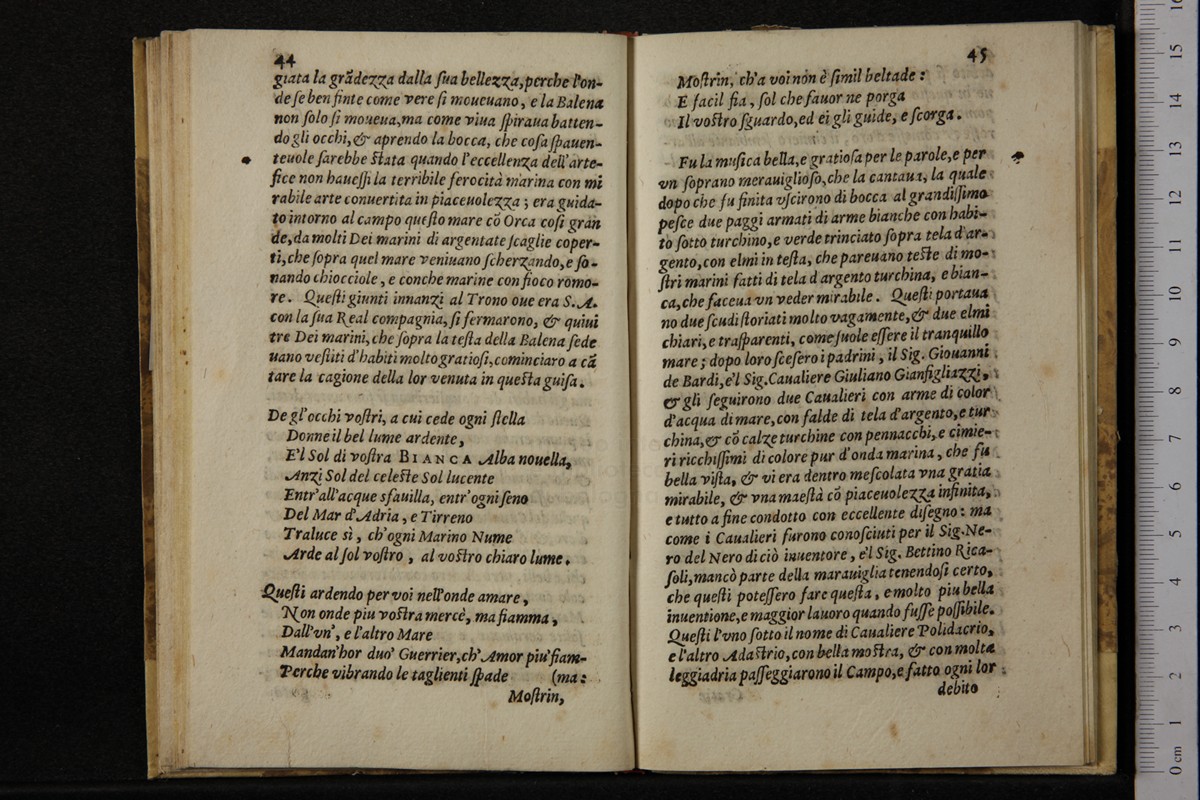 44
giata la grãdezza dalla ſua bellezza, perche l'on-
de ſe ben finte come vere ſi moueuano, e la Balena
non ſolo ſi moueua, ma come viua ſpiraua batten-
do gli occhi, & aprendo la bocca, che coſa ſpauen-
teuole ſarebbe ſtata quando l'eccellenza dell'arte-
fice non haueſſi la terribile ferocità marina con mi
rabile arte conuertita in piaceuolezza; era guida-
to intorno al campo queſto mare cõ Orca coſi gran
de, da molti Dei marini di argentate ſcaglie coper-
ti, che ſopra quel mare veniuano ſcherzando, e ſo-
nando chiocciole, e conche marine con fioco romo-
re. Queſti giunti innanzi al Trono oue era S.A.
con la ſua Real compagnia, ſi fermarono, & quiui
tre Dei marini, che ſopra la teſta della Balena ſede
uano veſtiti d'habiti molto gratioſi, cominciaro a cã
tare la cagione della lor venuta in queſta guiſa.
De gl'occhi voſtri, a cui cede ogni ſtella
Donne il bel lume ardente,
E'l Sol di voſtra BIANCA Alba nouella,
Anzi Sol del celeſte Sol lucente
Entr'all'acque sfauilla, entr'ogni ſeno
Del Mar d'Adria, e Tirreno
Traluce sì, ch'ogni Marino Nume
Arde al ſol voſtro, al voſtro chiaro lume.
Queſti ardendo per voi nell'onde amare,
Non onde piu voſtra mercè, ma fiamma,
Dall'vn', e l'altro Mare
Mandan'hor duo' Guerrier, ch'Amor piu'fiam-
Perche vibrando le taglienti ſpade (ma:
Moſtrin,
45
Moſtrin, ch'a voi non è ſimil beltade:
E facil fia, ſol che fauor ne porga
Il voſtro ſguardo, ed ei gli guide, e ſcorga.
Fu la muſica bella, e gratioſa per le parole, e per
vn ſoprano merauiglioſo, che la cantaua, la quale
dopo che fu finita vſcirono di bocca al grandiſſimo
peſce due paggi armati di arme bianche con habi-
to ſotto turchino, e verde trinciato ſopra tela d'ar-
gento, con elmi in teſta, che pareuano teſte di mo-
ſtri marini fatti di tela d argento turchina, e bian-
ca, che faceua vn veder mirabile. Queſti portaua
no due ſcudi ſtoriati molto vagamente, & due elmi
chiari, e traſparenti, come ſuole eſſere il tranquillo
mare; dopo loro ſceſero i padrini, il Sig. Giouanni
de Bardi, e'l Sig. Caualiere Giuliano Gianfigliazzi,
& gli ſeguirono due Caualieri con arme di color
d'acqua di mare, con falde di tela d'argento, e tur
china, & cõ calze turchine con pennacchi, e cimie-
ri ricchiſſimi di colore pur d'onda marina, che fu
bella viſta, & vi era dentro meſcolata vna gratia
mirabile, & vna maeſtà cõ piaceuolezza infinita,
e tutto a fine condotto con eccellente diſegno: ma
come i Caualieri furono conoſciuti per il Sig. Ne-
ro del Nero di ciò inuentore, e'l Sig. Bettino Rica-
ſoli, mancò parte della marauiglia tenendoſi certo,
che queſti poteſſero fare queſta, e molto piu bella
inuentione, e maggior lauoro quando fuſſe poſſibile.
Queſti l'vno ſotto il nome di Caualiere Polidacrio,
e l'altro Adaſtrio, con bella moſtra, & con molta
leggiadria paſſeggiarono il Campo, e fatto ogni lor
debito
0 cm 1 2 3 4 5 6 7 8 9 10 11 12 13 14 15 16